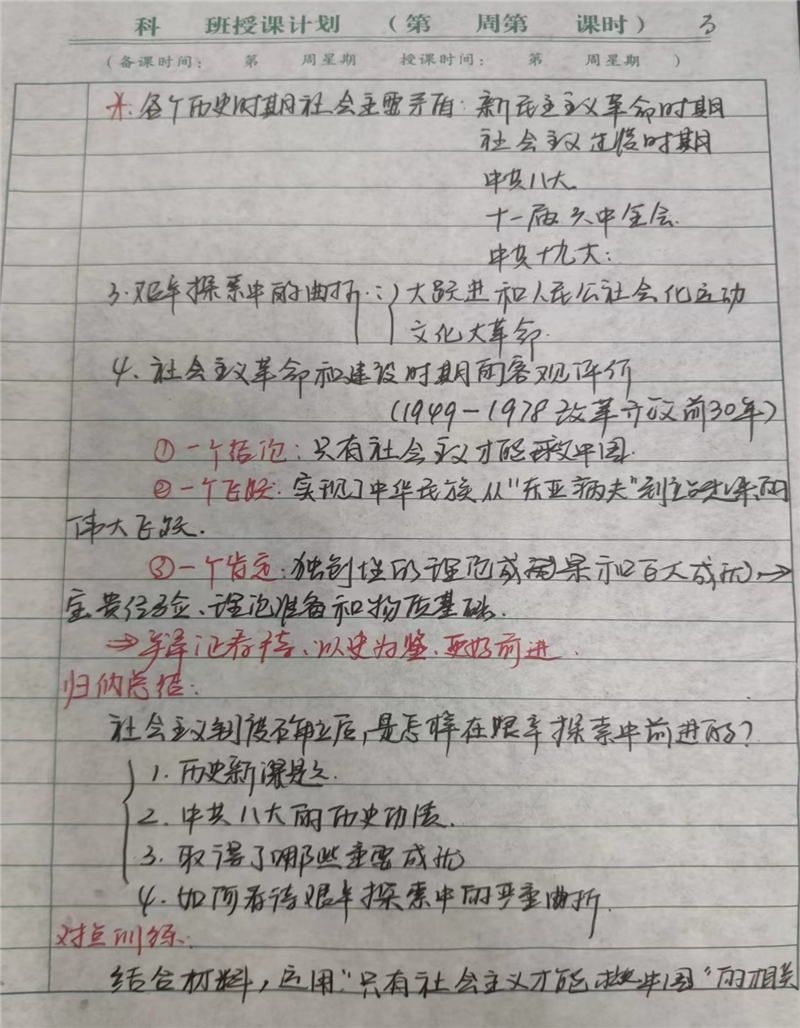 科 班授课计划 （第 周第 课时） 3
（备课时间： 第 周星期 授课时间： 第 周星期 ）
*. 各个历史时期社会主要矛盾：新民主主义革命时期
社会主义建设时期
中共八大
十一届六中全会
中共十九大：
3. 艰辛探索中的曲折：大跃进和人民公社会化运动
文化大革命
4. 社会主义革命和建设时期的客观评价
（1949-1978 改革开放前30年）
①一个结论：只有社会主义才能救中国
②一个飞跃：实现了中华民族从"东亚病夫"到站起来的
伟大飞跃.
③一个肯定：独创性的理论成果和巨大成就→
宝贵经验、理论准备和物质基础.
→辩证看待、以史为鉴、更好前进.
归纳总结：
社会主义制度确立后，是怎样在艰辛探索中前进的？
1. 历史新课题.
2. 中共八大的历史功绩.
3. 取得了哪些重要成就
4. 如何看待艰辛探索中的严重曲折.
对点训练：
结合材料，运用"只有社会主义才能救中国"的相关